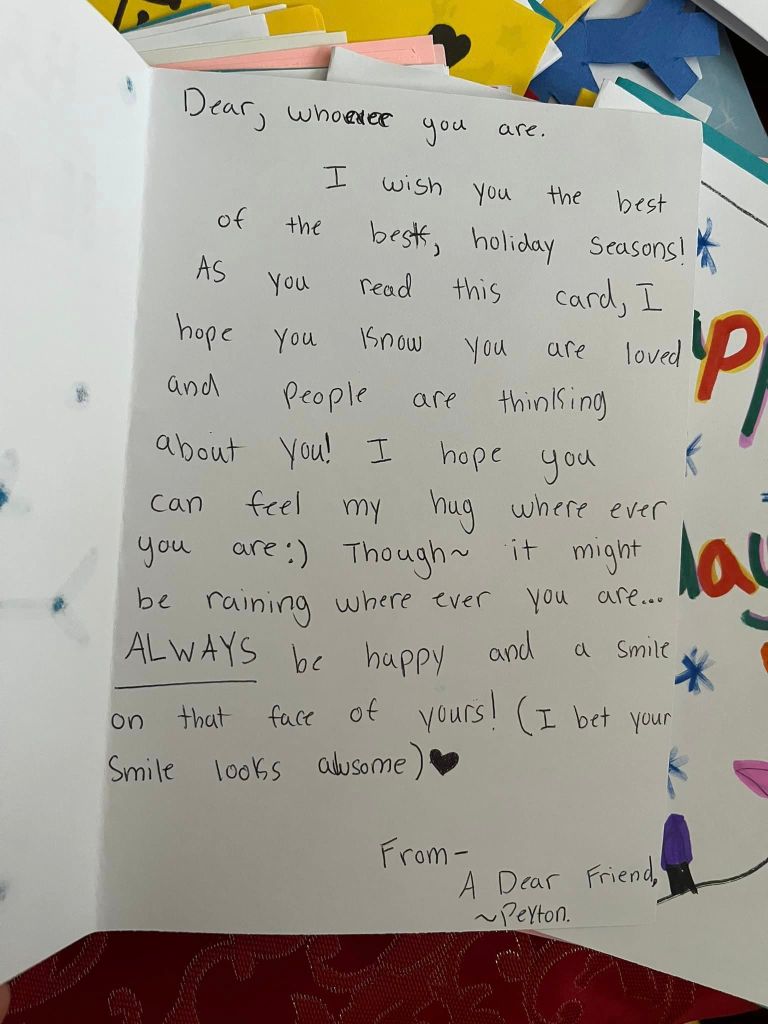 Dear, whoever you are.
I wish you the best
of the best, holiday seasons!
As you read this card, I
hope you know you are loved
and people are thinking
about you! I hope you
can feel my hug where ever
you are:) Though~ it might
be raining where ever you are...
ALWAYS be happy and a smile
on that face of yours! (I bet your
smile looks awsome)♥
From-
A Dear Friend,
~Peyton.